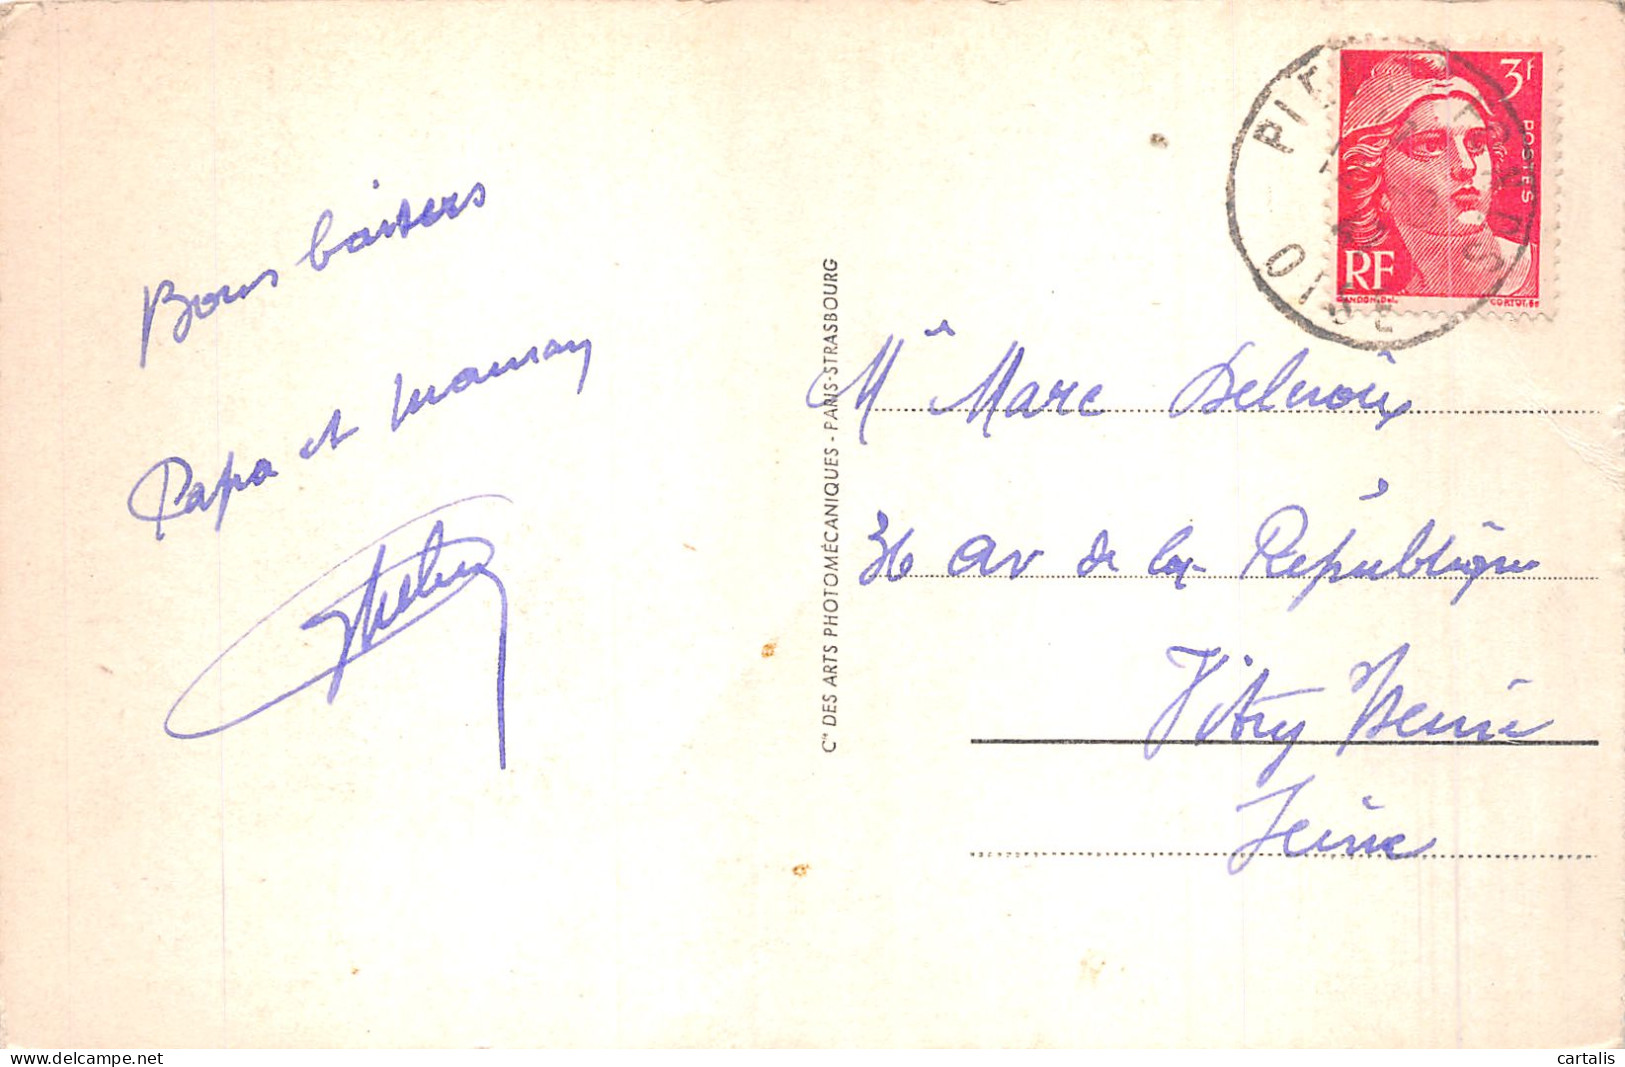 Bons baisers
Papa et Maman
Cie DES ARTS PHOTOMÉCANIQUES - PARIS-STRASBOURG
3f
POSTES
RF
GANDON.Del.
CORTOT.Sc
OISE
Mr Marc Delcroix
36 av de la République
Vitry Seine
Seine
cartalis